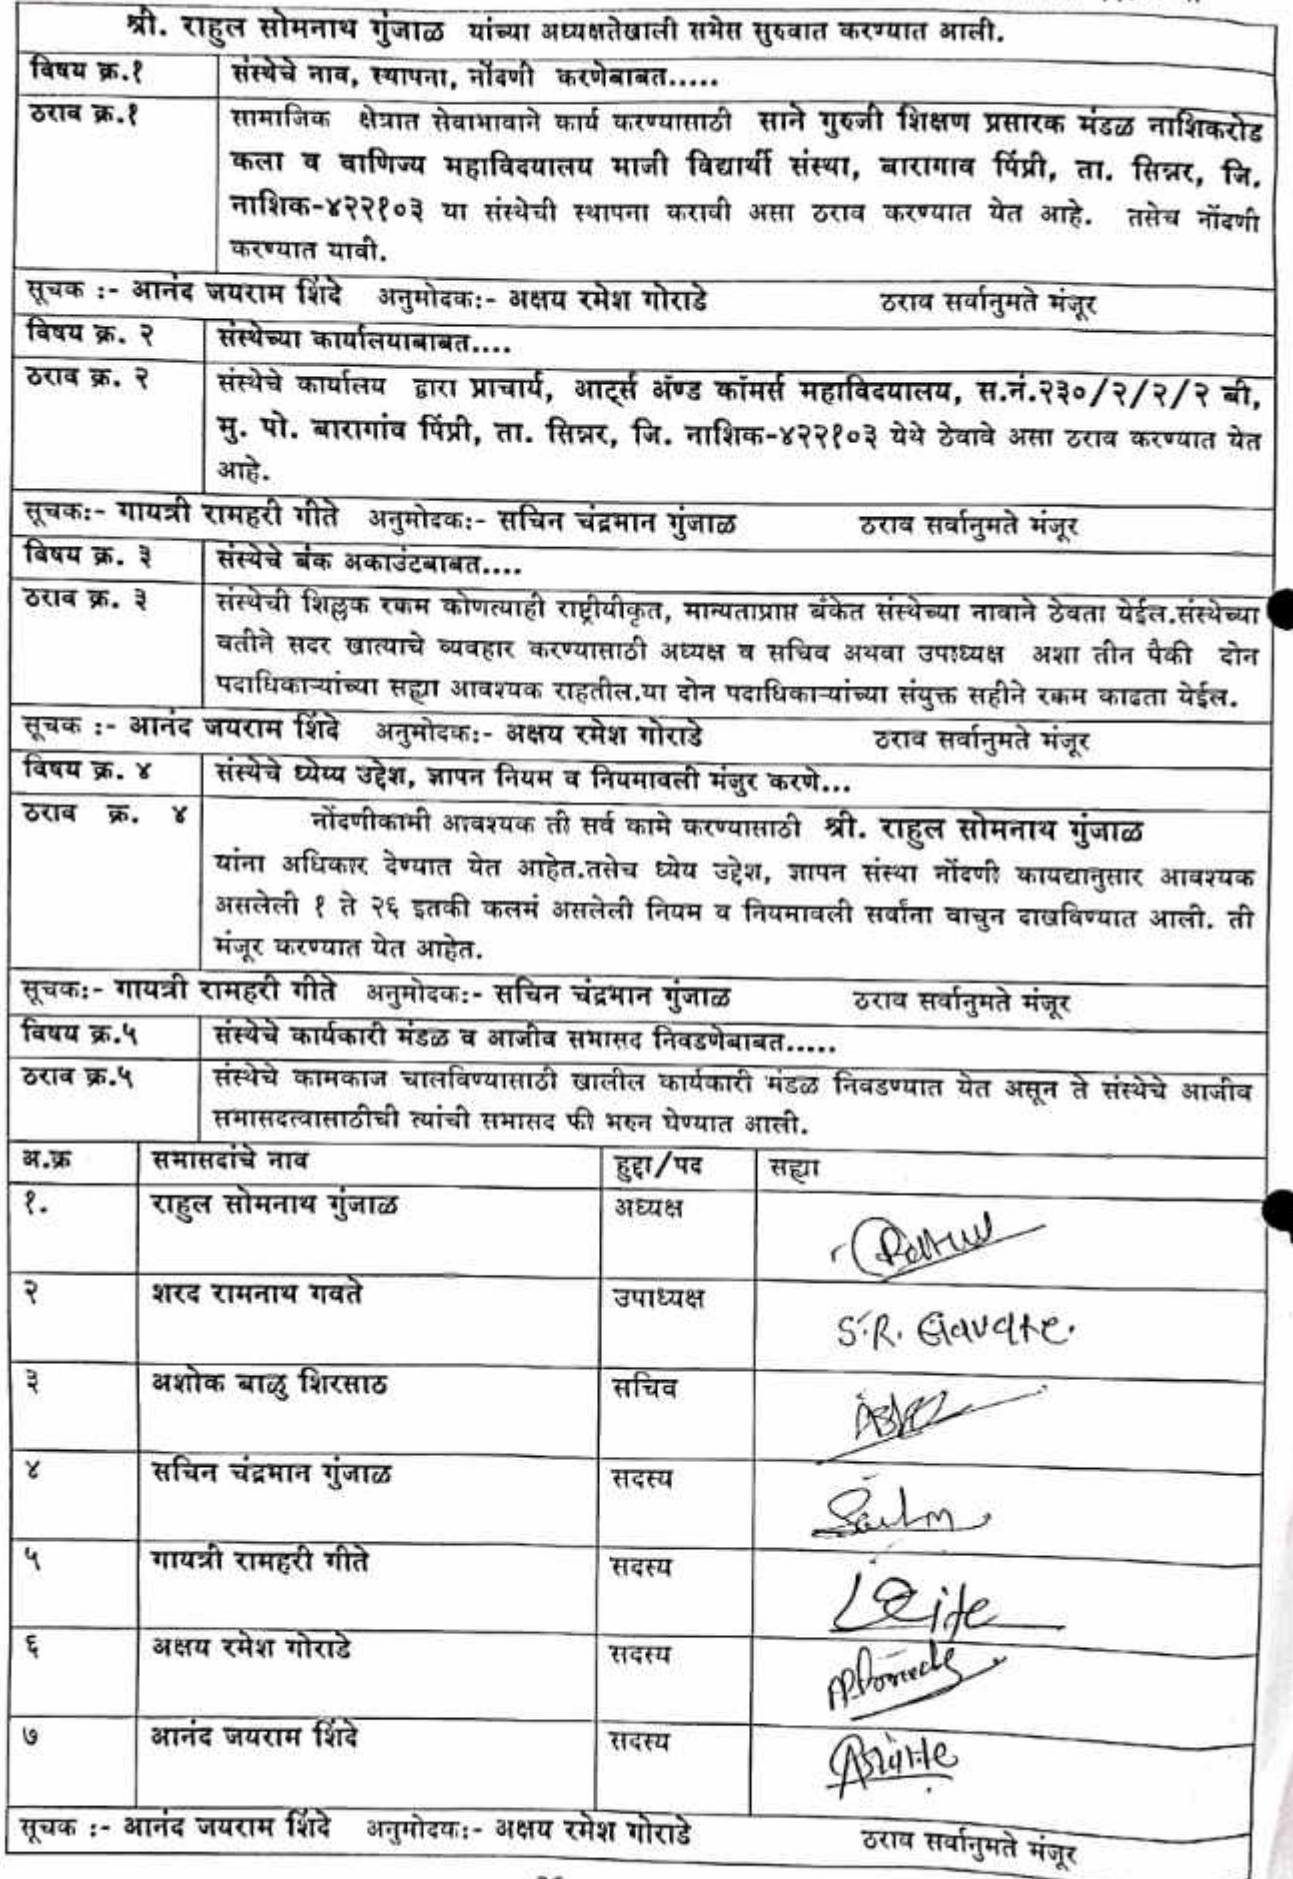 श्री. राहुल सोमनाथ गुंजाळ यांच्या अध्यक्षतेखाली सभेस सुरुवात करण्यात आली.
विषय क्र.१ संस्थेचे नाव, स्थापना, नोंदणी करणेबाबत.....
ठराव क्र.१ सामाजिक क्षेत्रात सेवाभावाने कार्य करण्यासाठी साने गुरुजी शिक्षण प्रसारक मंडळ नाशिकरोड
कला व वाणिज्य महाविदयालय माजी विद्यार्थी संस्था, बारागाव पिंप्री, ता. सिन्नर, जि.
नाशिक-४२२१०३ या संस्थेची स्थापना करावी असा ठराव करण्यात येत आहे. तसेच नोंदणी
करण्यात यावी.
सूचक :- आनंद जयराम शिंदे अनुमोदक:- अक्षय रमेश गोराडे ठराव सर्वानुमते मंजूर
विषय क्र. २ संस्थेच्या कार्यालयाबाबत....
ठराव क्र. २ संस्थेचे कार्यालय द्वारा प्राचार्य, आर्ट्स अॅण्ड कॉमर्स महाविदयालय, स.नं.२३०/२/२/२ बी,
मु. पो. बारागांव पिंप्री, ता. सिन्नर, जि. नाशिक-४२२१०३ येथे ठेवावे असा ठराव करण्यात येत
आहे.
सूचक:- गायत्री रामहरी गीते अनुमोदक:- सचिन चंद्रभान गुंजाळ ठराव सर्वानुमते मंजूर
विषय क्र. ३ संस्थेचे बंक अकाउंटबाबत....
ठराव क्र. ३ संस्थेची शिल्लक रकम कोणत्याही राष्ट्रीयीकृत, मान्यताप्राप्त बंकेत संस्थेच्या नावाने ठेवता येईल.संस्थेच्या
वतीने सदर खात्याचे व्यवहार करण्यासाठी अध्यक्ष व सचिव अथवा उपाध्यक्ष अशा तीन पैकी दोन
पदाधिकाऱ्यांच्या सह्या आवश्यक राहतील.या दोन पदाधिकाऱ्यांच्या संयुक्त सहीने रकम काढता येईल.
सूचक :- आनंद जयराम शिंदे अनुमोदक:- अक्षय रमेश गोराडे ठराव सर्वानुमते मंजूर
विषय क्र. ४ संस्थेचे ध्येय्य उद्देश, ज्ञापन नियम व नियमावली मंजुर करणे...
ठराव क्र. ४ नोंदणीकामी आवश्यक ती सर्व कामे करण्यासाठी श्री. राहुल सोमनाथ गुंजाळ
यांना अधिकार देण्यात येत आहेत.तसेच ध्येय उद्देश, ज्ञापन संस्था नोंदणी कायद्यानुसार आवश्यक
असलेली १ ते २६ इतकी कलमं असलेली नियम व नियमावली सर्वांना वाचुन दाखविण्यात आली. ती
मंजूर करण्यात येत आहेत.
सूचक:- गायत्री रामहरी गीते अनुमोदक:- सचिन चंद्रभान गुंजाळ ठराव सर्वानुमते मंजूर
विषय क्र.५ संस्थेचे कार्यकारी मंडळ व आजीव सभासद निवडणेबाबत.....
ठराव क्र.५ संस्थेचे कामकाज चालविण्यासाठी खालील कार्यकारी मंडळ निवडण्यात येत असून ते संस्थेचे आजीव
सभासदत्वासाठीची त्यांची सभासद फी भरुन घेण्यात आली.
अ.क्र सभासदांचे नाव हुद्दा/पद सह्या
१. राहुल सोमनाथ गुंजाळ अध्यक्ष
२ शरद रामनाथ गवते उपाध्यक्ष S.R. Gavate.
३ अशोक बाळु शिरसाठ सचिव
४ सचिन चंद्रभान गुंजाळ सदस्य
५ गायत्री रामहरी गीते सदस्य
६ अक्षय रमेश गोराडे सदस्य
७ आनंद जयराम शिंदे सदस्य
सूचक :- आनंद जयराम शिंदे अनुमोदक:- अक्षय रमेश गोराडे ठराव सर्वानुमते मंजूर